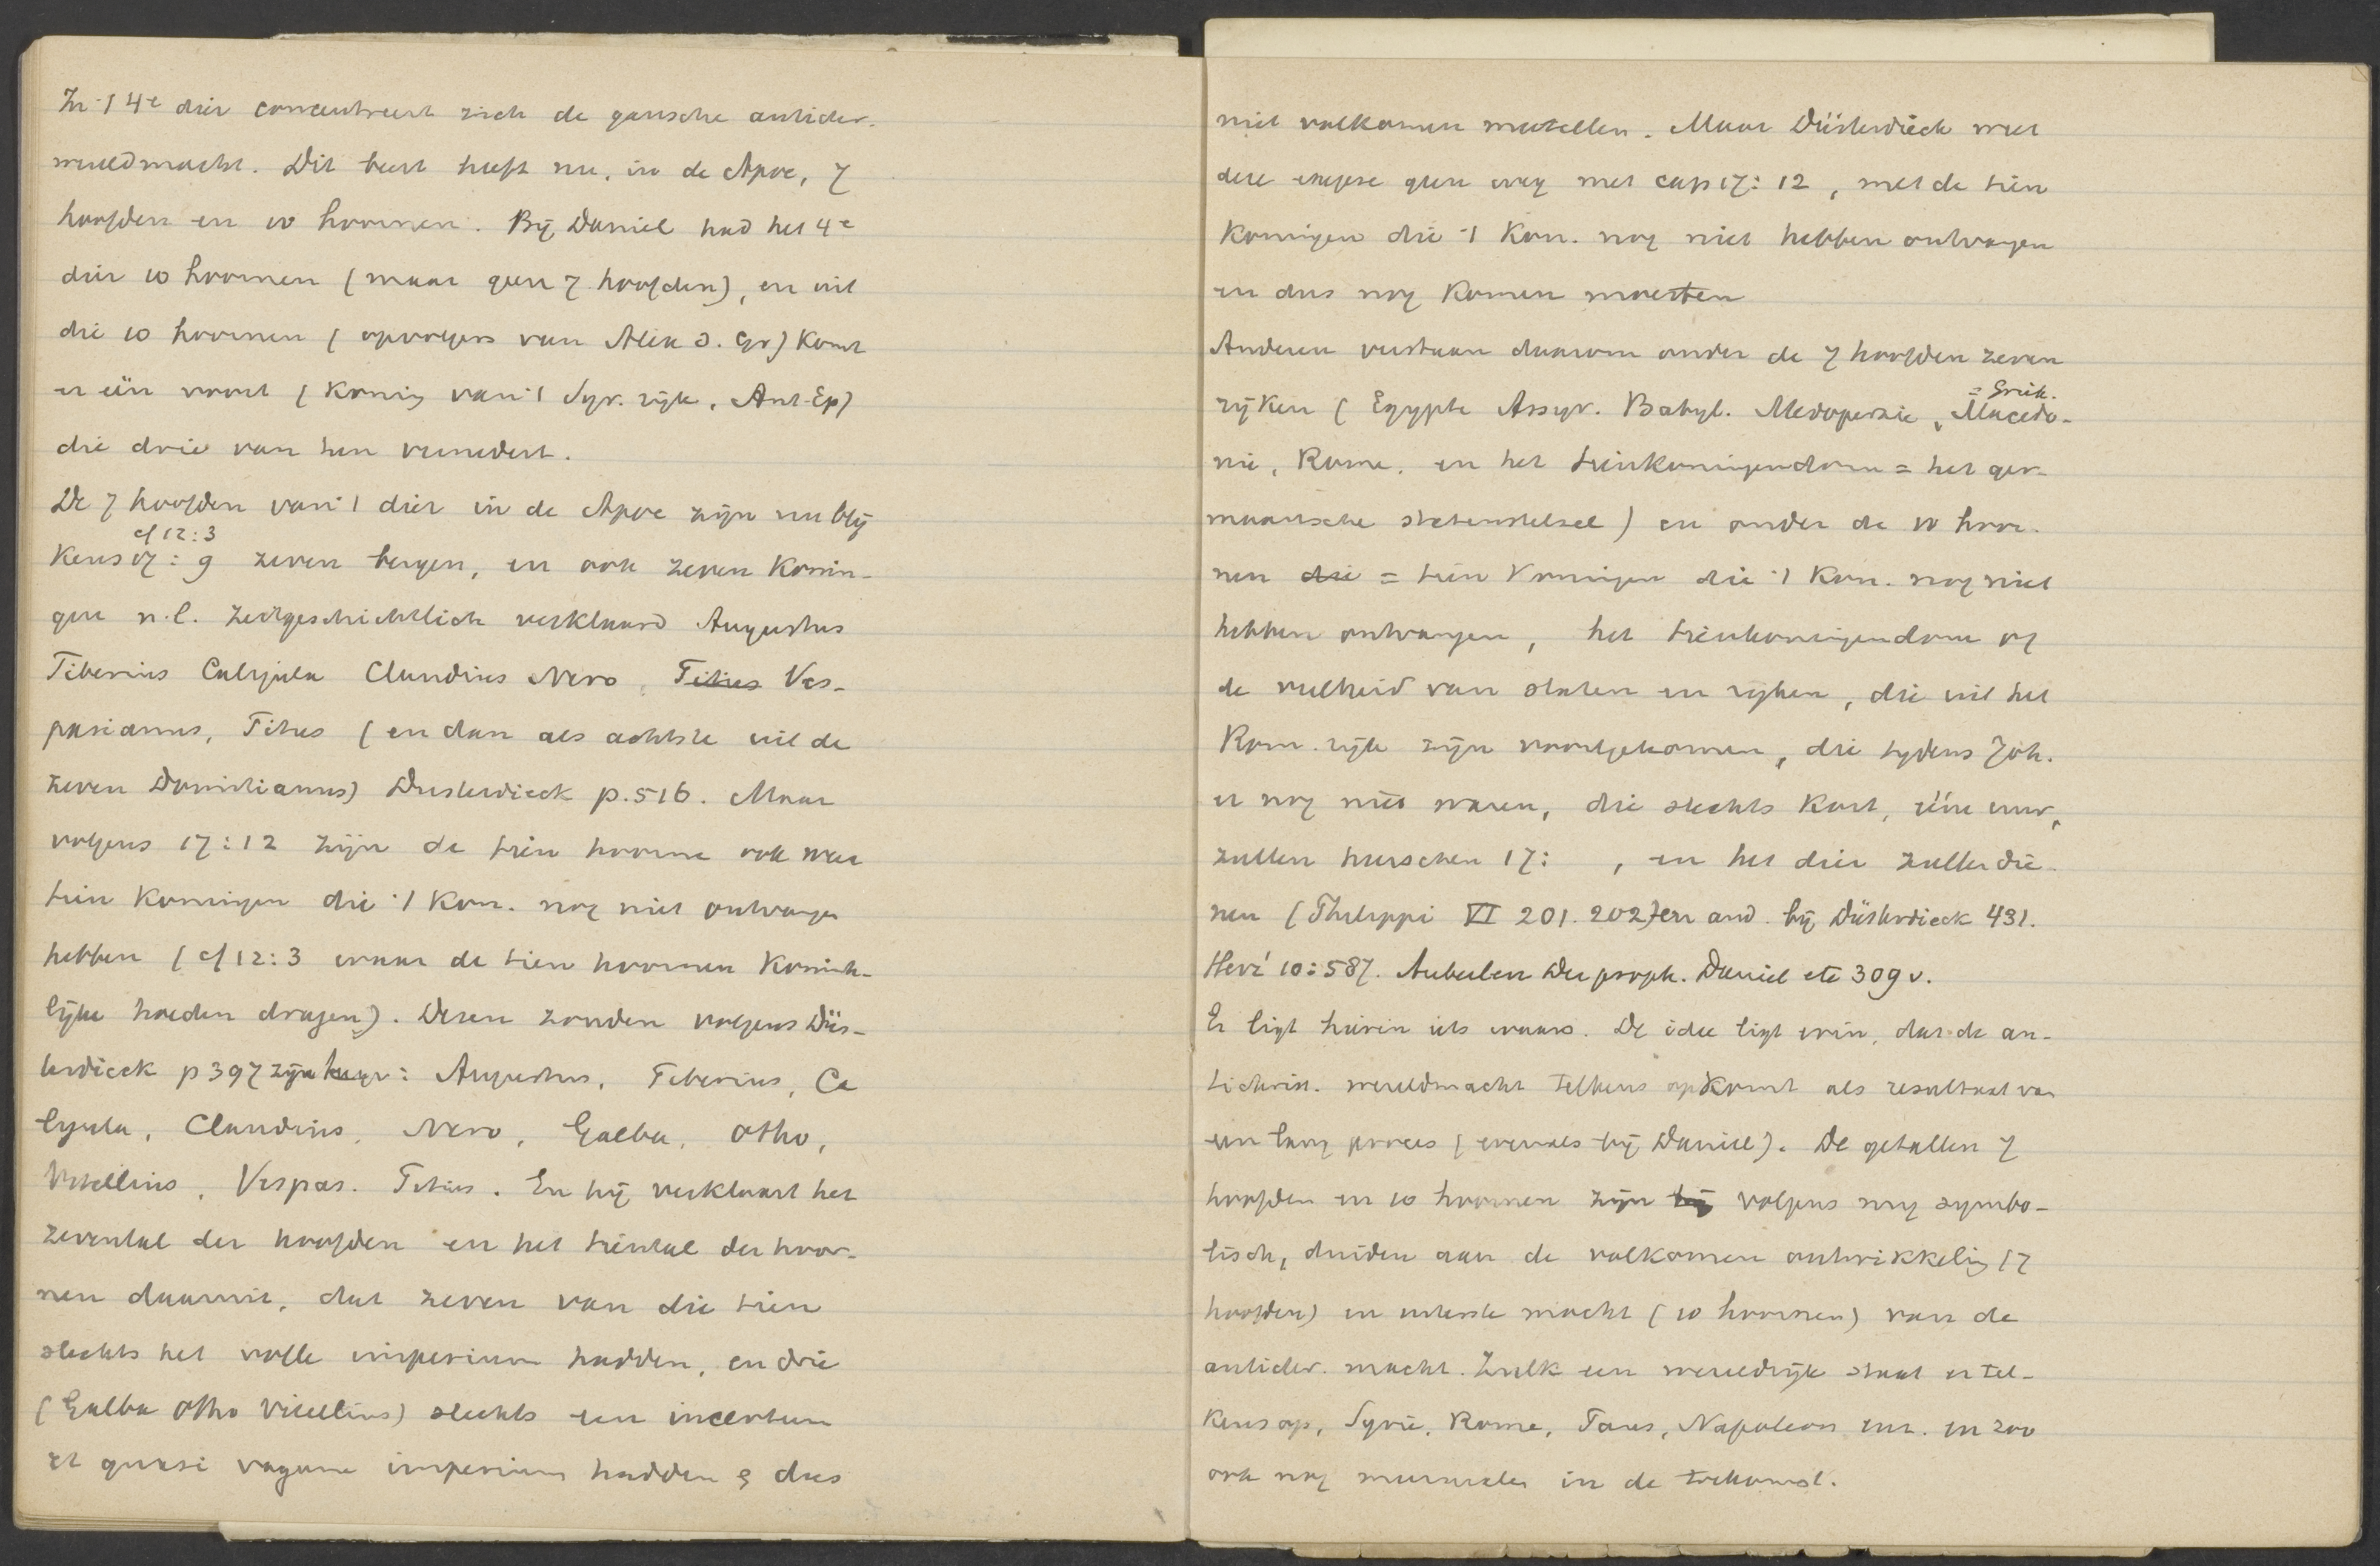 In 't 4e dier concentreert zich de gansche antichr.
wereldmacht. Dit beest heeft nu, in de Apoc, 7
hoofden en 10 hoornen. Bij Daniel had het 4e
dier 10 hoornen (maar geen 7 hoofden), en uit
die 10 hoornen (opvolgers van Alex d. Gr) komt
er één voort (koning van 't Syr. rijk, Ant. Ep)
die drie van hen vernedert.
De 7 hoofden van 't dier in de Apoc zijn nu blij
cf 12:3
kens 17:9 zeven bergen, en ook zeven konin-
gen n.l. zeitgeschichtlich verklaard Augustus
Tiberius Caligula Claudius Nero, Titus Ves-
pasianus, Titus (en dan als achtste uit de
zeven Domitianus) Dusterdieck p. 516. Maar
volgens 17:12 zijn de tien hoorne ook weer
tien koningen die 't kon. nog niet ontvangen
hebben (cf 12:3 waar de tien hoornen konink-
lijke hoeden dragen). Dezen zouden volgens Düs-
terdieck p 397 zijn: Augustus, Tiberius, Ca
ligula, Claudius, Nero, Galba, Otho,
Vitellius, Vespas. Titus. En hij verklaart het
zevental der hoofden en het tiental der hoor-
nen daaruit, dat zeven van die tien
slechts het volle imperium hadden, en drie
(Galba Otho Vitellius) slechts een incertum
et quasi vagum imperium hadden & dus
niet volkomen meetellen. Maar Düsterdieck weet
deze exegese geen weg met cap 17:12, met de tien
koningen die 't kon. nog niet hebben ontvangen
en dus nog komen moesten
Anderen verstaan daarom onder de 7 hoofden zeven
= Griek.
rijken (Egypte Assyr. Babyl. Medoperzie, Macedo-
nie, Rome, en het tienkoningendom = het ger-
maansche statenstelsel) en onder de 10 hoor-
nen die = tien koningen die 't kon. nog niet
hebben ontvangen, het tienkoningendom of
de veelheid van staten en rijken, die uit het
Rom. rijk zijn voortgekomen, die tijdens Joh.
er nog niet waren, die slechts kort, één uur,
zullen heerschen 17: , en het dier zullen die-
nen (Philippi VI 201. 202) en and. bij Düsterdieck 431.
Herz. 10:587. Auberlen Der proph. Daniel etc 309 v.
Er ligt hierin iets waars. De idee ligt erin, dat de an-
tichrist. wereldmacht telkens opkomt als resultaat van
een lang proces (evenals bij Daniel). De getallen 7
hoofden en 10 hoornen zijn volgens mij symbo-
lisch, duiden aan de volkomen ontwikkeling (7
hoofden) en uiterste macht (10 hoornen) van de
antichr. macht. Zulk een wereldrijk staat er tel-
kens op, Syrië, Rome, Paus, Napoleon enz. en zoo
ook nog meermalen in de toekomst.